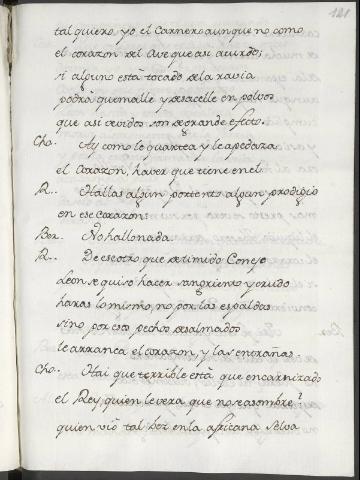 121
tal quiero, yo el Carnero aunque no como
el corazon del Ave que asi acurdo;
si alguno esta tocado de la ravia
podrà quemalle y desacelle en polvos
que asi devidos son de grande efecto.
Cho. Ay como le quartea y le apedaza
el Corazon, ha ver que tiene en el
R. Hallas algun portento algun prodigio
en ese Corazon:
Bor. No hallo nada.
R. De esotro que de timido Conejo
Leon se quiso hacer sangriento y crudo
haras lo mismo, no por las espaldas
sino por esos pechos desalmados
le arranca el corazon, y las entrañas
Cho. Hai que terrible està que encarnizado
el Rey, quien le vera que no se asombre?
quien viò tal por en la africana selva